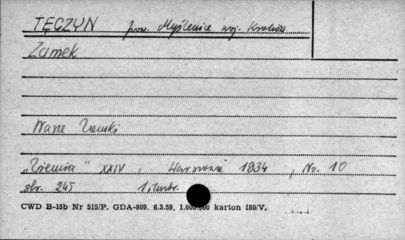 TĘCZYN pow. Myślenice woj. Kraków
Zamek
"Ziemia" XXIV, Warszawa 1934, Nr. 10
str. 245 1 ilustr.
CWD B-15b Nr 515/P. GDA-809. 6.3.59, 1.000.000 karton 180/V.